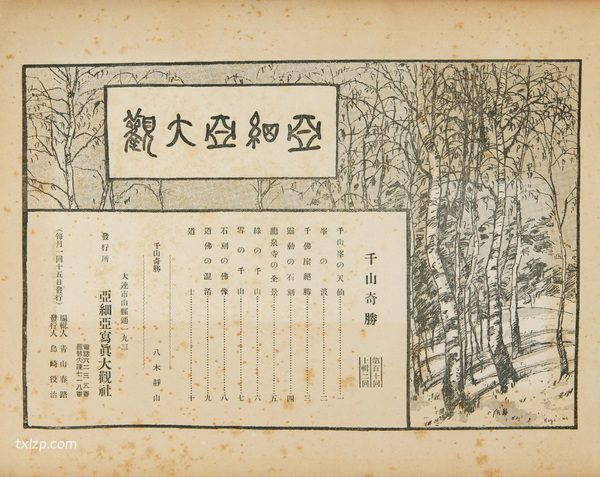 亞細亞大觀
千山奇勝
第百十回
十輯二回
千山峯の天仙……一
峯の波……二
千佛崖絕勝……三
動の石刻……四
龍泉寺の全景……五
綠の千山……六
雪の千山……七
石刻の佛像……八
道佛の混淆……九
道士……十
千山奇勝……八木靜山
大連市山縣通一九三
發行所 亞細亞寫眞大觀社
電話六二三五番
振替大連七一八番
編輯人 青山春路
發行人 島崎役治
(每月一回十五日發行)
txlzp.com